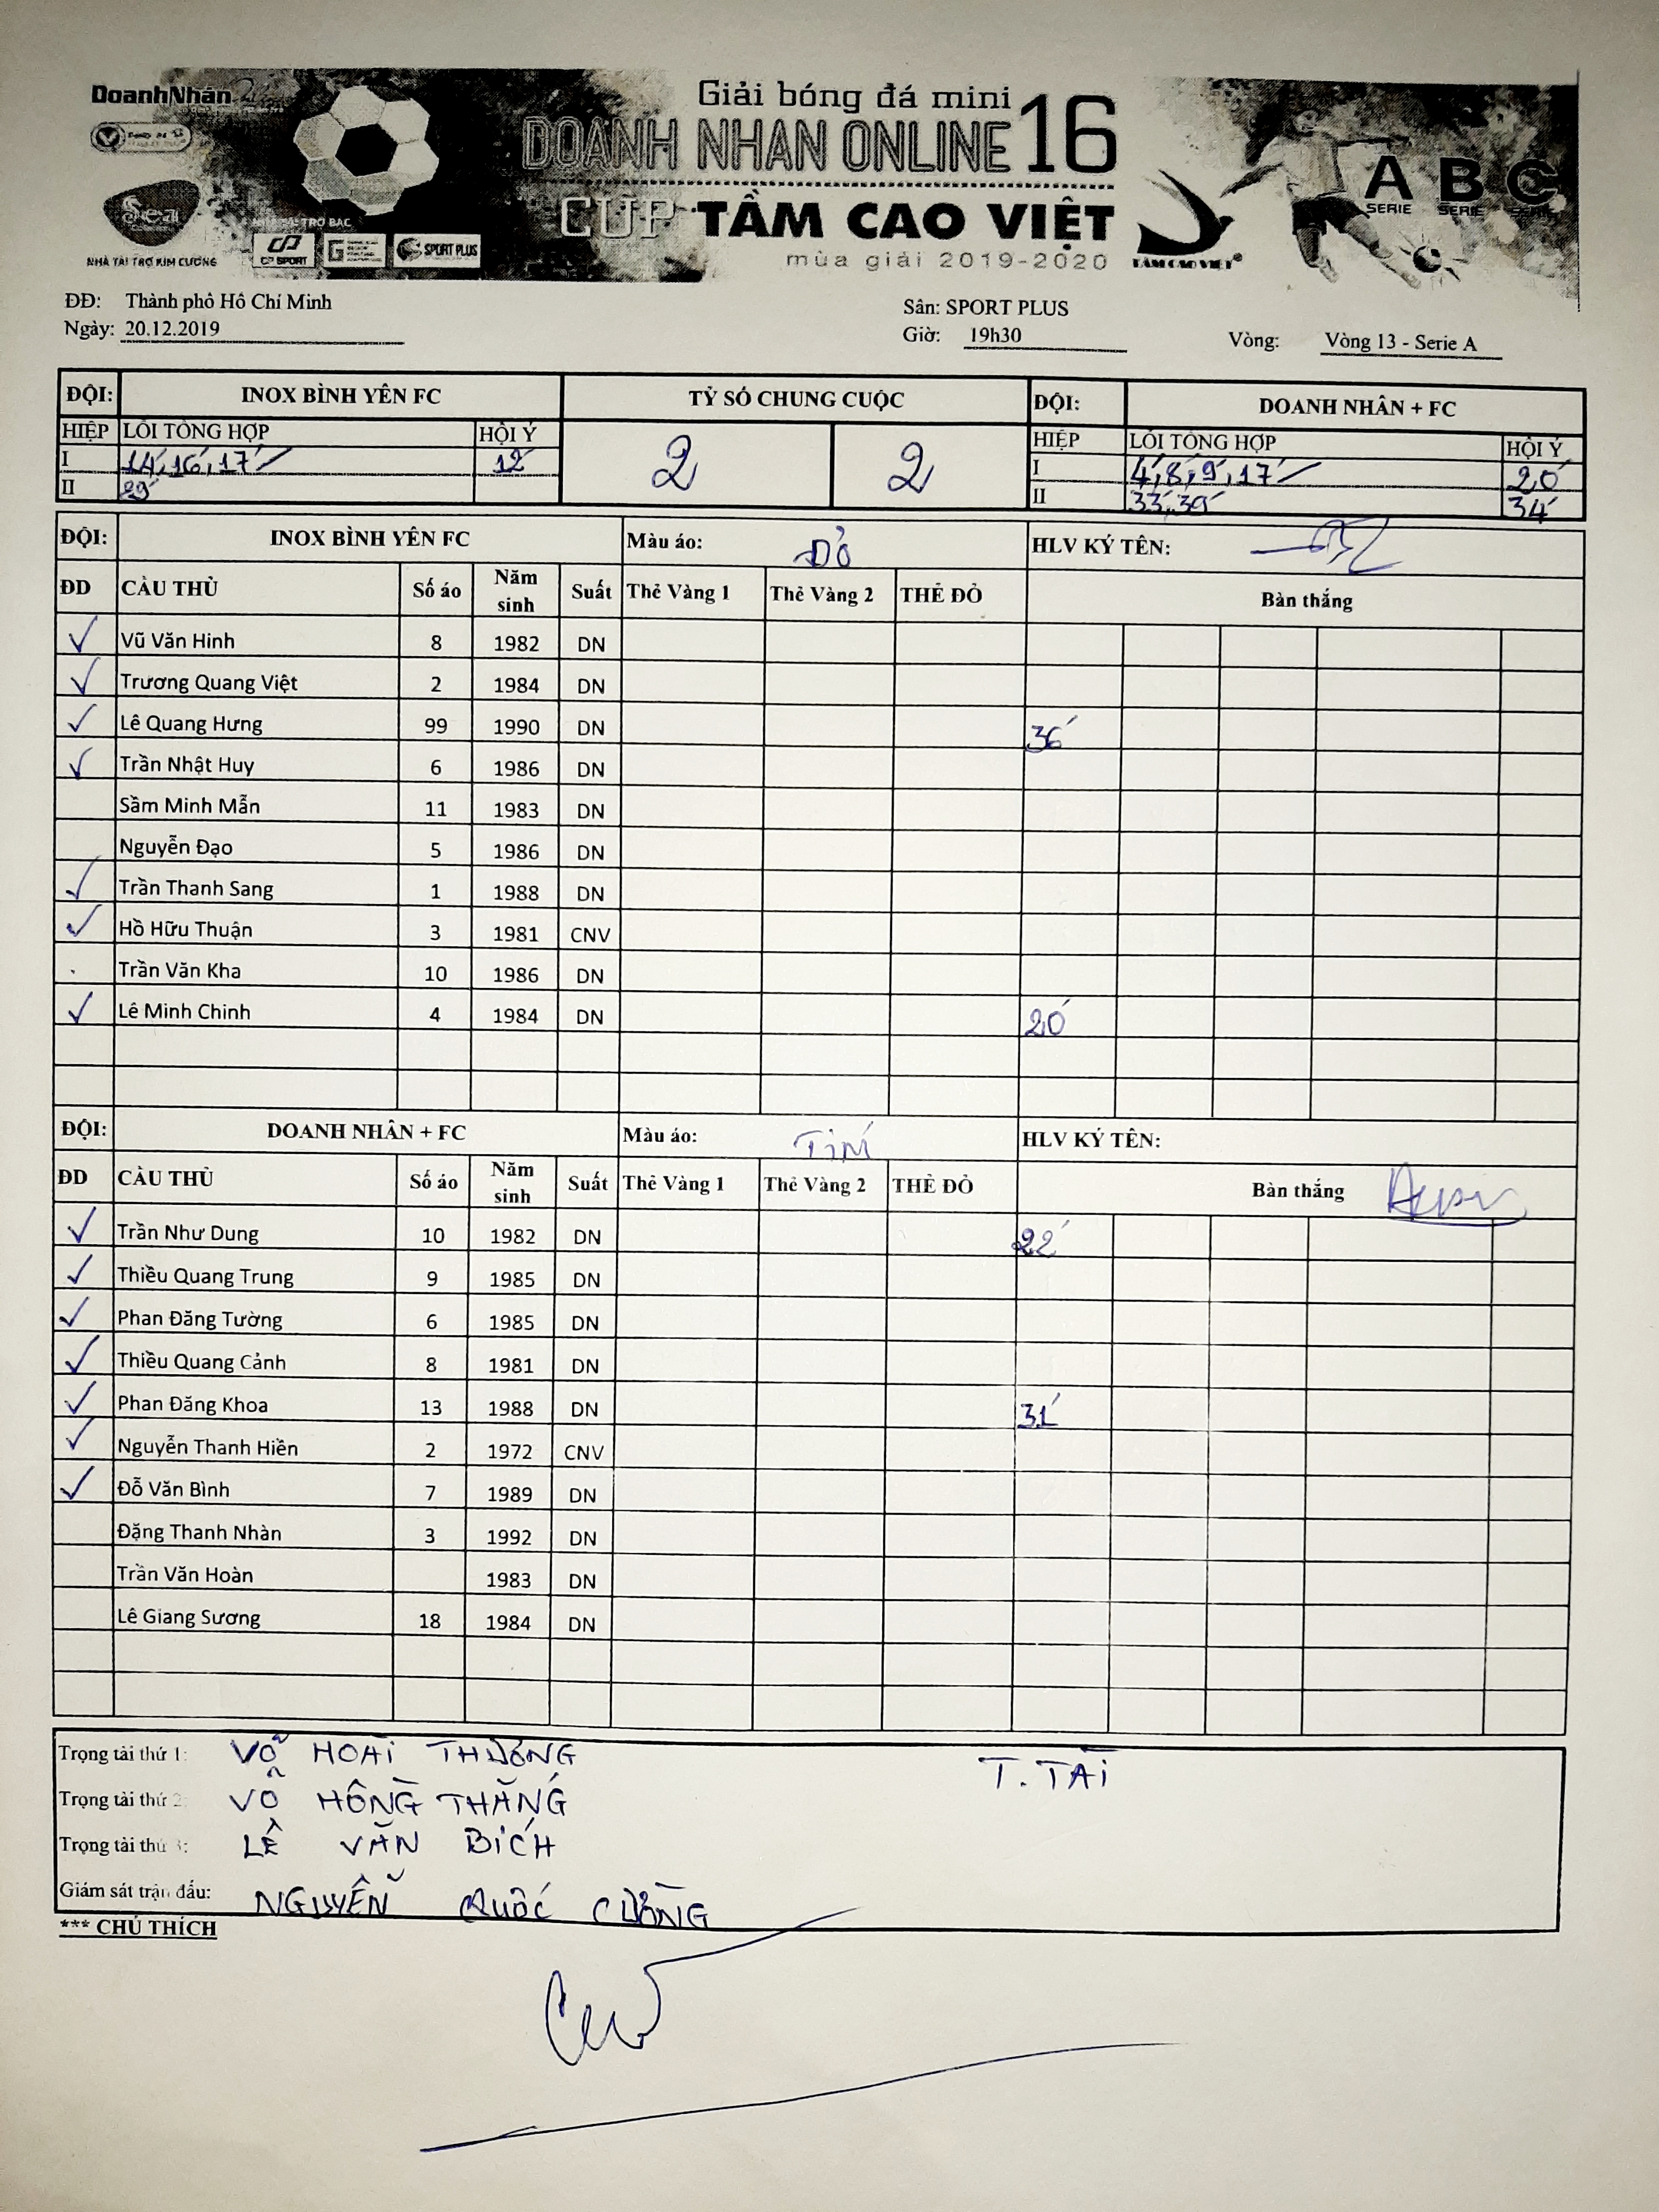 DoanhNhân
Giải bóng đá mini
DOANH NHAN ONLINE 16
CUP TẦM CAO VIỆT
mùa giải 2019-2020
NHÀ TÀI TRỢ KIM CƯƠNG
TRỢ BẠC
CP SPORT
SPORT PLUS
TẦM CAO VIỆT
A B C
SERIE SERIE SERIE
ĐĐ: Thành phố Hồ Chí Minh
Sân: SPORT PLUS
Ngày: 20.12.2019
Giờ: 19h30
Vòng: Vòng 13 - Serie A
ĐỘI: INOX BÌNH YÊN FC TỶ SỐ CHUNG CUỘC ĐỘI: DOANH NHÂN + FC
HIỆP LỖI TỔNG HỢP HỘI Ý 2 2 HIỆP LỖI TỔNG HỢP HỘI Ý
I 14', 16', 17' 12' I 4', 8', 9', 17' 20'
II 29' II 33', 39' 34'
ĐỘI: INOX BÌNH YÊN FC Màu áo: ĐỎ HLV KÝ TÊN:
ĐD CẦU THỦ Số áo Năm sinh Suất Thẻ Vàng 1 Thẻ Vàng 2 THẺ ĐỎ Bàn thắng
✓ Vũ Văn Hinh 8 1982 DN
✓ Trương Quang Việt 2 1984 DN
✓ Lê Quang Hưng 99 1990 DN 36'
✓ Trần Nhật Huy 6 1986 DN
Sầm Minh Mẫn 11 1983 DN
Nguyễn Đạo 5 1986 DN
✓ Trần Thanh Sang 1 1988 DN
✓ Hồ Hữu Thuận 3 1981 CNV
Trần Văn Kha 10 1986 DN
✓ Lê Minh Chinh 4 1984 DN 20'
ĐỘI: DOANH NHÂN + FC Màu áo: TÍM HLV KÝ TÊN:
ĐD CẦU THỦ Số áo Năm sinh Suất Thẻ Vàng 1 Thẻ Vàng 2 THẺ ĐỎ Bàn thắng
✓ Trần Như Dung 10 1982 DN 22'
✓ Thiều Quang Trung 9 1985 DN
✓ Phan Đăng Tường 6 1985 DN
✓ Thiều Quang Cảnh 8 1981 DN
✓ Phan Đăng Khoa 13 1988 DN 31'
✓ Nguyễn Thanh Hiền 2 1972 CNV
✓ Đỗ Văn Bình 7 1989 DN
Đặng Thanh Nhàn 3 1992 DN
Trần Văn Hoàn 1983 DN
Lê Giang Sương 18 1984 DN
Trọng tài thứ 1: VÕ HOÀI THƯƠNG T. TÀI
Trọng tài thứ 2: VÕ HỒNG THẮNG
Trọng tài thứ 3: LÊ VĂN BÍCH
Giám sát trận đấu: NGUYỄN QUỐC CƯỜNG
*** CHÚ THÍCH